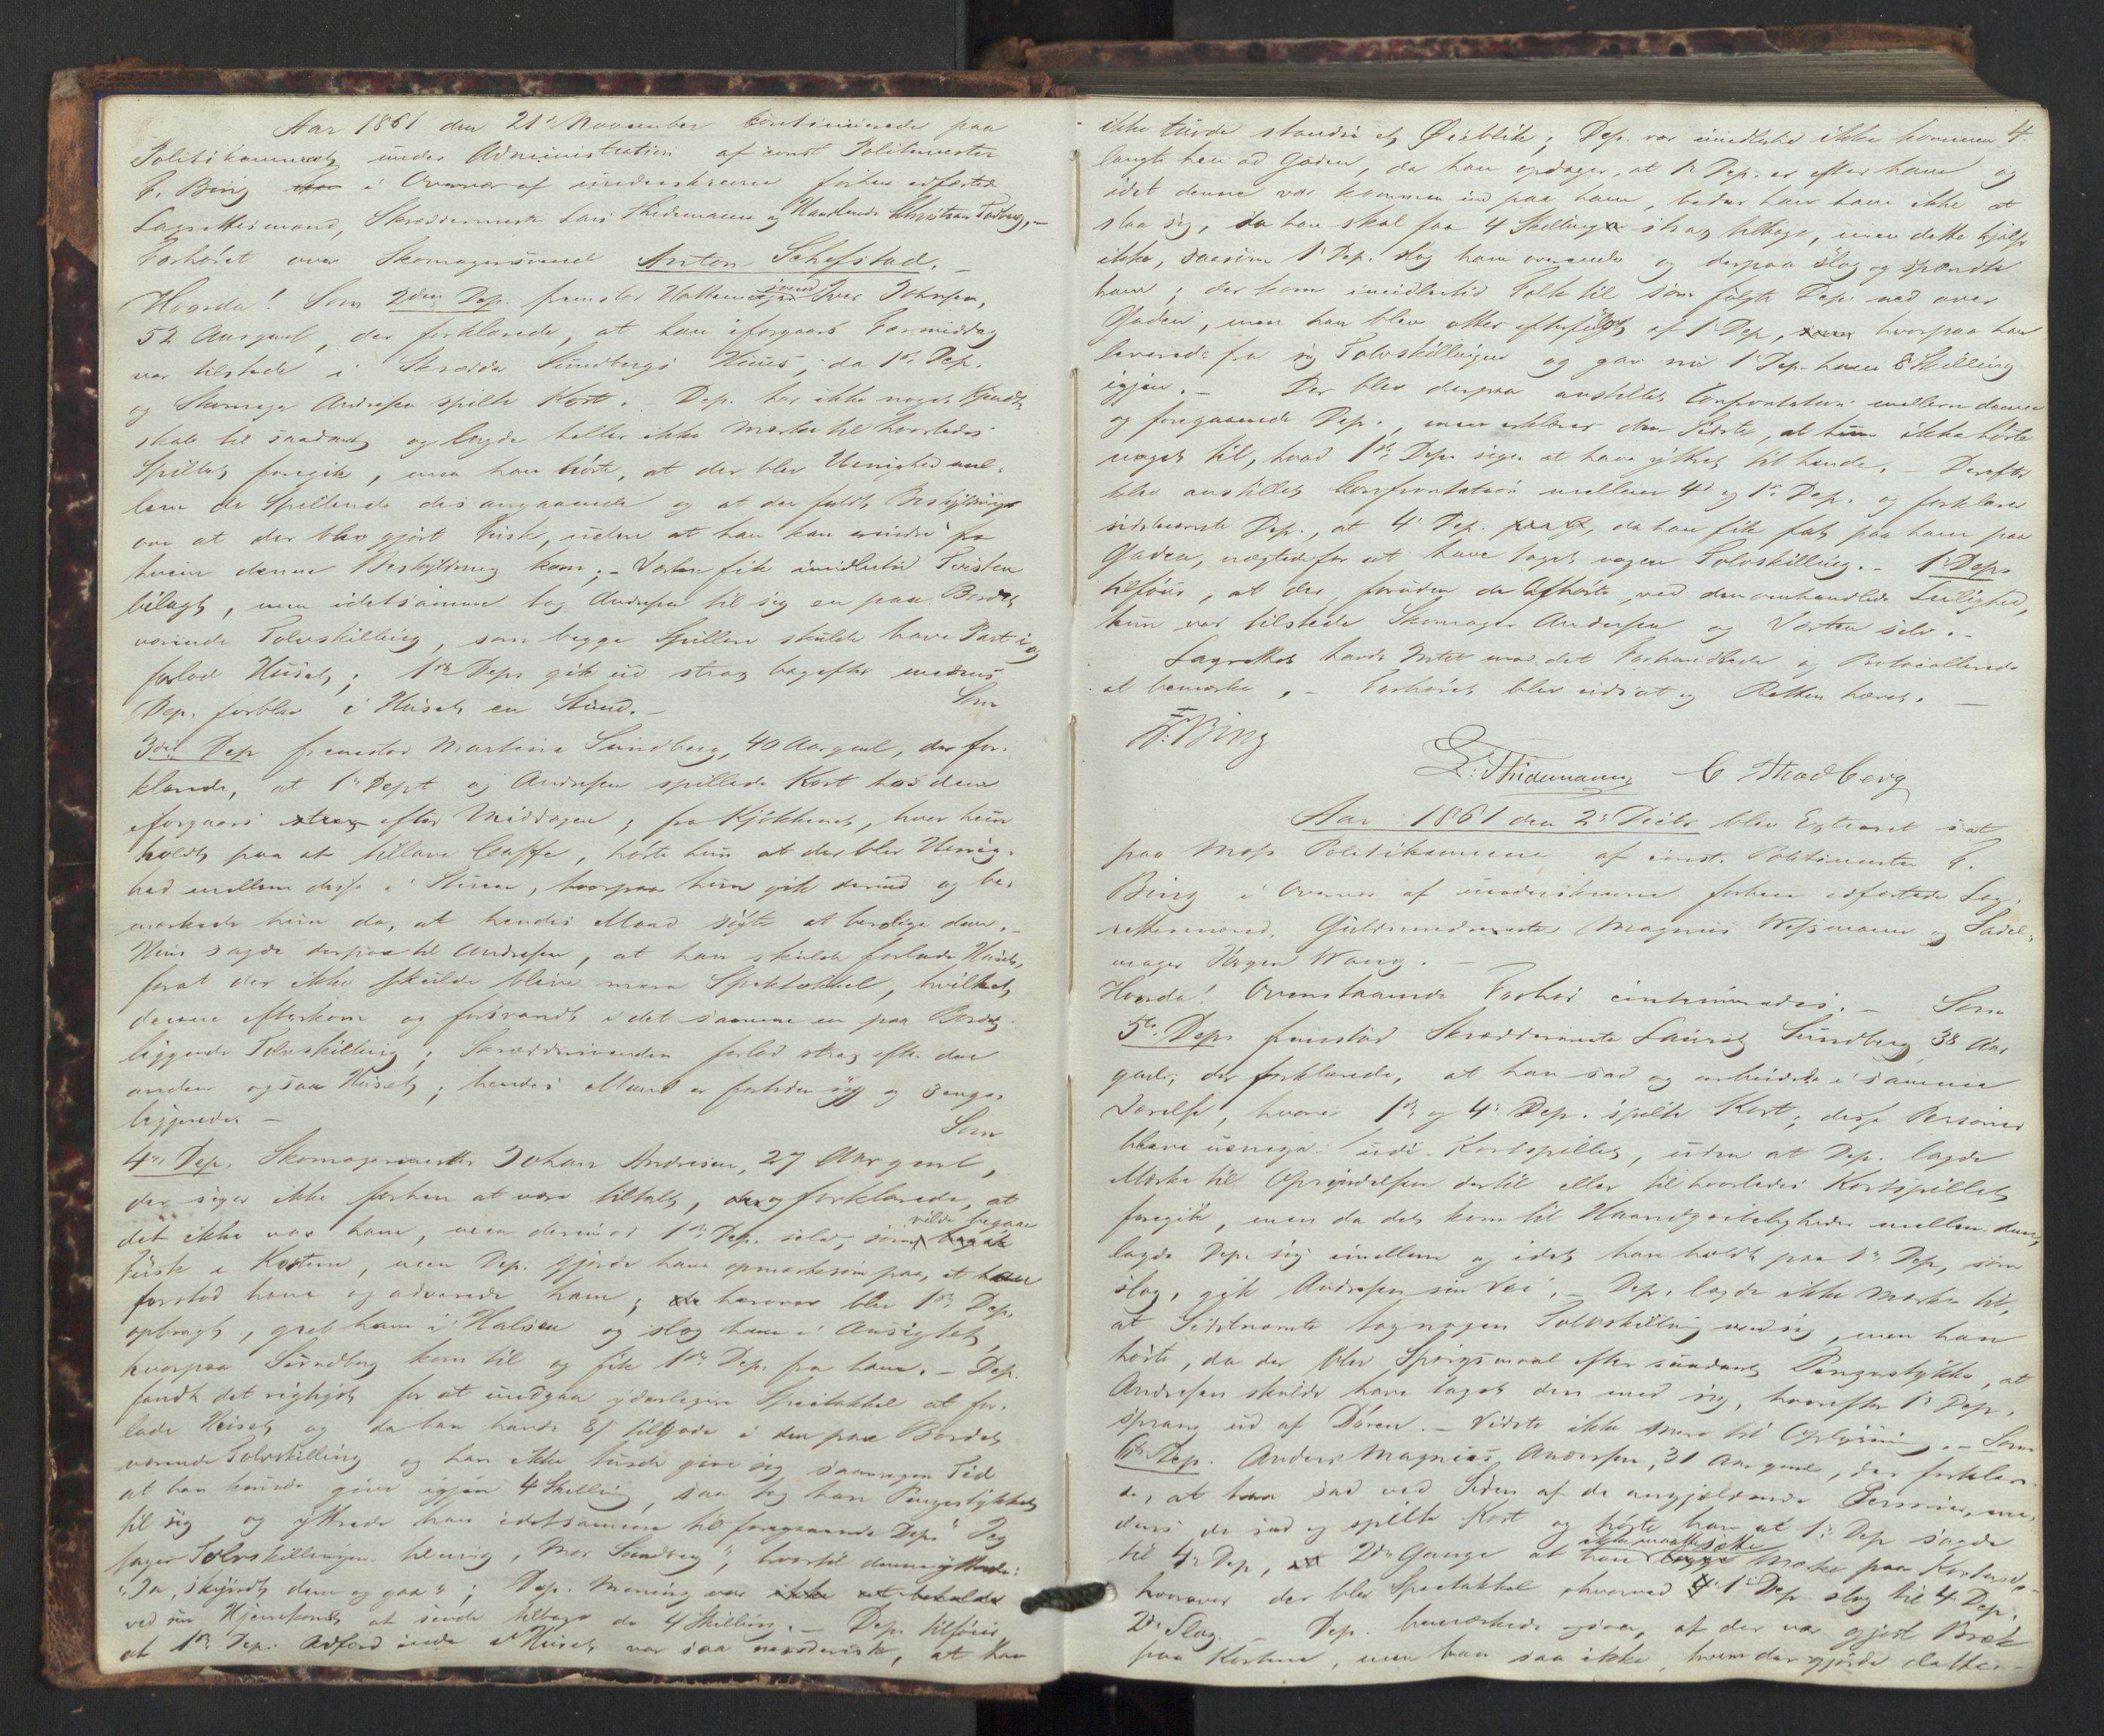 Aar 1861 den 21de November continuerede paa
Politikammeret under Administration af const Politimester
F. Bing i Overvær af underskrevne forhen edfæstede
Lagrettesmænd, Skræddermester Lars Thidemann og Handlende Christian Todberg,-
Forhöret over Skomagersvend Anton Schefstad.-
Hvorda! Som 2den Dep. fremstod Iver Johnsen,
52 Aar gml, der forklarede, at han iforgaars Formiddag
var tilstede i Skrædder Sundbergs Huus, da 1ste Dep.
og Skomager Andresen spillte Kort. Dep. har ikke noget Kjendt
skab til saadant og lagde heller ikke Mærke til hvorledes
Spillet foregik, men han hörte, at der blev Uenighed mel-
lem de Spillende desangaaende og at der faldt Beskyldninger
om at der blev gjört Fusk, uden at han kan erindre fra
hvem denne Beskyldning kom;- Værten fik imidlertid Tvisten
bilagt, men idetsamme tog Andresen til sig en paa Bordet
værende Tolvskilling, som begge Spillere skulde have Part i og
forlod Huset; 1ste Dep. gik ud strax bagefter medens
Dep. forblev i Huset en Stund.- Som
3die Dep fremstod Martine Sundberg, 40 Aar gml, der for-
klarede, at 1ste Dept og Andresen spillede Kort hos dem
iforgaars strax efter Middagen; fra Kjökkenet, hvor hun
holdt paa at tillave Caffe, hörte hun at der blev Uenig-
hed mellem disse i Stuen, hvorpaa hun gik derind og be-
mærkede hun da, at hendes Mand sögte at berolige dem.-
Hun sagde derpaa til Andresen, at han skulde forlade Huset,
forat der ikke skulde blive mere Spektakkel, hvilket
denne efterkom og forsvandt i det samme en paa Bordet
liggende Tolvskilling; Skræddersvenden forlod strax efter den
anden ogsaa Huset; hendes Mand er fortiden syg og senge-
liggende.- Som
4de Dep. Skomagermester Johan Andresen, 27 Aar gml,
der siger ikke forhen at være tiltalt, og forklarede, at
det ikke var ham, men derimod 1ste Dep. selv, som vilde begaae
Fusk i Kortene, men Dep. gjorde ham opmærksom paa, at han
forstod ham og advarede ham; herover blev 1ste Dep.
opbragt, greb ham i Halsen og slog ham i Ansigtet,
hvorpaa Sundberg kom til og fik 1ste Dep. fra ham.- Dep.
fandt det rigtigst for at undgaa yderligere Spektakkel at for-
lade Huset og da han havde 8 s tilgode i den paa Bordet
værende Tolvskilling og han ikke turde give sig saamegen Tid
at han kunde give igjen 4 Skilling, saa tog han Pengestykket
til sig og yttrede han idetsamme til foregaaende Dep. "Jeg
tager Tolvskillingen til mig, Mor Sundberg", hvortil denne yttrede:
"Ja, skyndt dem og gaa"; Dep. Mening var
ved sin Hjemkomst at sende tilbage de 4 Skilling.- Dep. tilföier
at 1ste Dep. Adfærd inde i Huset var saa morderisk, at han
ikke turde standse et Öieblik; Dep. var imidlertid ikke kommen 4.
langt hen ad Gaden, da han opdager, at 1ste Dep. er efter ham og
idet denne var kommen ind paa ham, beder han ham ikke at
slaa sig, da han skal faa 4 Skilling strax tilbage, men dette hjalp
ikke, saasom 1ste Dep. slog ham overende og derpaa slog og spændte
ham; der kom imidlertid Folk til som fulgte Dep. ned over
Gaden, men han blev atter efterfulgt af 1ste Dep, hvorpaa han
leverede fra sig Tolvskillingen og gav nu 1ste Dep. ham 8 Skilling
igjen.- Der blev derpaa anstillet Confrontation mellem denne
og foregaaende Dep., men erklærer den Sidste, at hun ikke hörte
noget til, hvad 1ste Dep. siger at have yttret til hende.- Derefter
blev anstillet Confrontation mellem 4de og 1ste Dep. og forklarer
sidstnævnte Dep., at 4de Dep. da han fik fat paa ham paa
Gaden, nægtede for at have taget nogen Tolvskilling.- 1ste Dep.
tilföier, at der, foruden de Afhörte, ved den omhandlede Leilighed,
kun var tilstede Skomager Andersen og Værten selv.-
Lagrettet havde Intet mod det Forhandlede og Protocollerede
at bemærke.- Forhöret blev udsat og Retten hævet.-
F. Bing
L. Thidemann C Thodberg
Aar 1861 den 2den Decbr blev Extraret sat
paa Moss Politikammer af const. Politimester F.
Bing i Overvær af underskrevne forhen edfæstede Lag-
rettesmænd, Guldsmedmester Magnus Wessmann og Sadel-
mager Jörgen Wang.-
Hvorda! Ovenstaaende Forhör continueredes.- Som
5te Dep. fremstod Skræddermester Laurits Sundberg 38 Aar
gml; der forklarede, at han sad og arbeidede i samme
Værelse, hvori 1ste og 4de Dep. spillte Kort; disse Personer
bleve uenige udi Kortspillet, uden at Dep. lagde
Mærke til Oprindelsen dertil eller til hvorledes Kortspillet
foregik, men da det kom til Haandgribeligheder mellem dem,
lagde Dep. sig imellem og idet han holdt paa 1ste Dep, som
slog, gik Andresen sin Vei.- Dep. lagde ikke Mærke til,
at Sidstnævnte tog nogen Tolvskilling med sig, men han
hörte, da der blev Spörgsmaal efter saadant Pengestykke, at
Andresen skulde have taget den med sig, hvorefter 1ste Dep.
sprang ud af Dören.- Vidste ikke mere til Oplysning.- Som
6te Dep. Anders Magnus Andersen, 31 Aar gml, der forklare-
de, at han sad ved Siden af de angjældende Personer, me-
dens de sad og spillte Kort og hörte han at 1ste Dep sagde
til 4de Dep, 2de Gange at han ikke maatte sætte Mærke paa Kortene,-
hvorover der blev Spectakkel hvorved 1ste Dep slog til 4 Dep.
2de Slag.- Dep. bemærkede ogsaa, at der var gjort Bræk
paa Kortene, men han saa ikke, hvem der gjorde dette.-